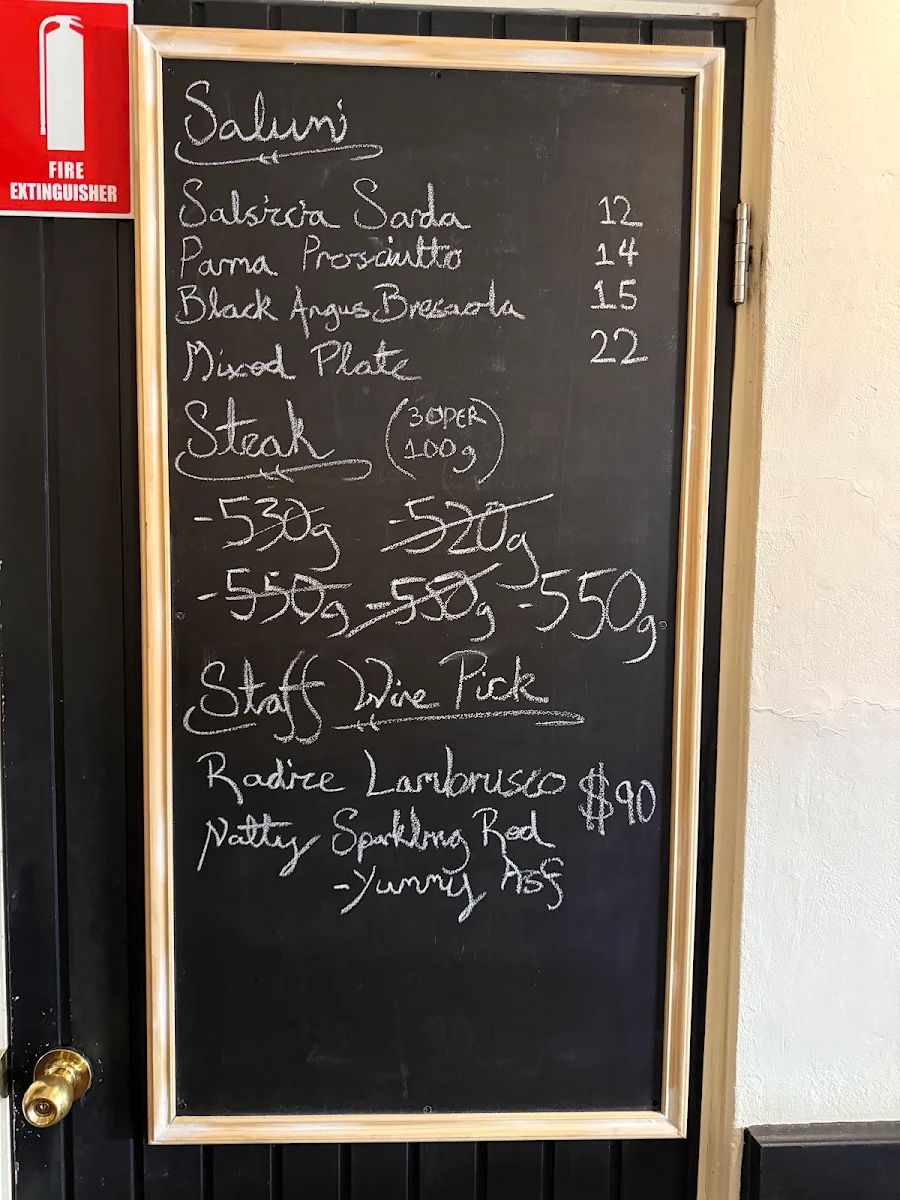 FIRE
EXTINGUISHER
Salumi
Salsiccia Sarda 12
Parma Prosciutto 14
Black Angus Bresaola 15
Mixed Plate 22
Steak (30PER 100g)
-530g -520g
-550g -550g -550g
Staff Wine Pick
Radice Lambrusco $90
Natty Sparkling Red
-Yummy ASF